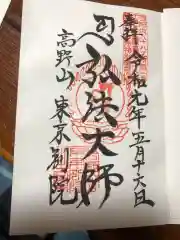 奉拝
令和元年五月十六日
弘法大師
高野山
東京別院